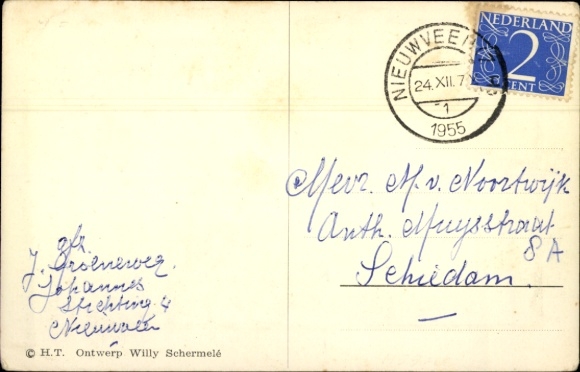 NEDERLAND
2
CENT
NIEUWVEEN
24.XII.7
1
1955
Mevr. M. v. Noortwijk
Anth. Muysstraat
8A
Schiedam.
afz.
J. Groeneweg.
Johannes
Stichting 4
Nieuwveen
© H.T. Ontwerp Willy Schermelé